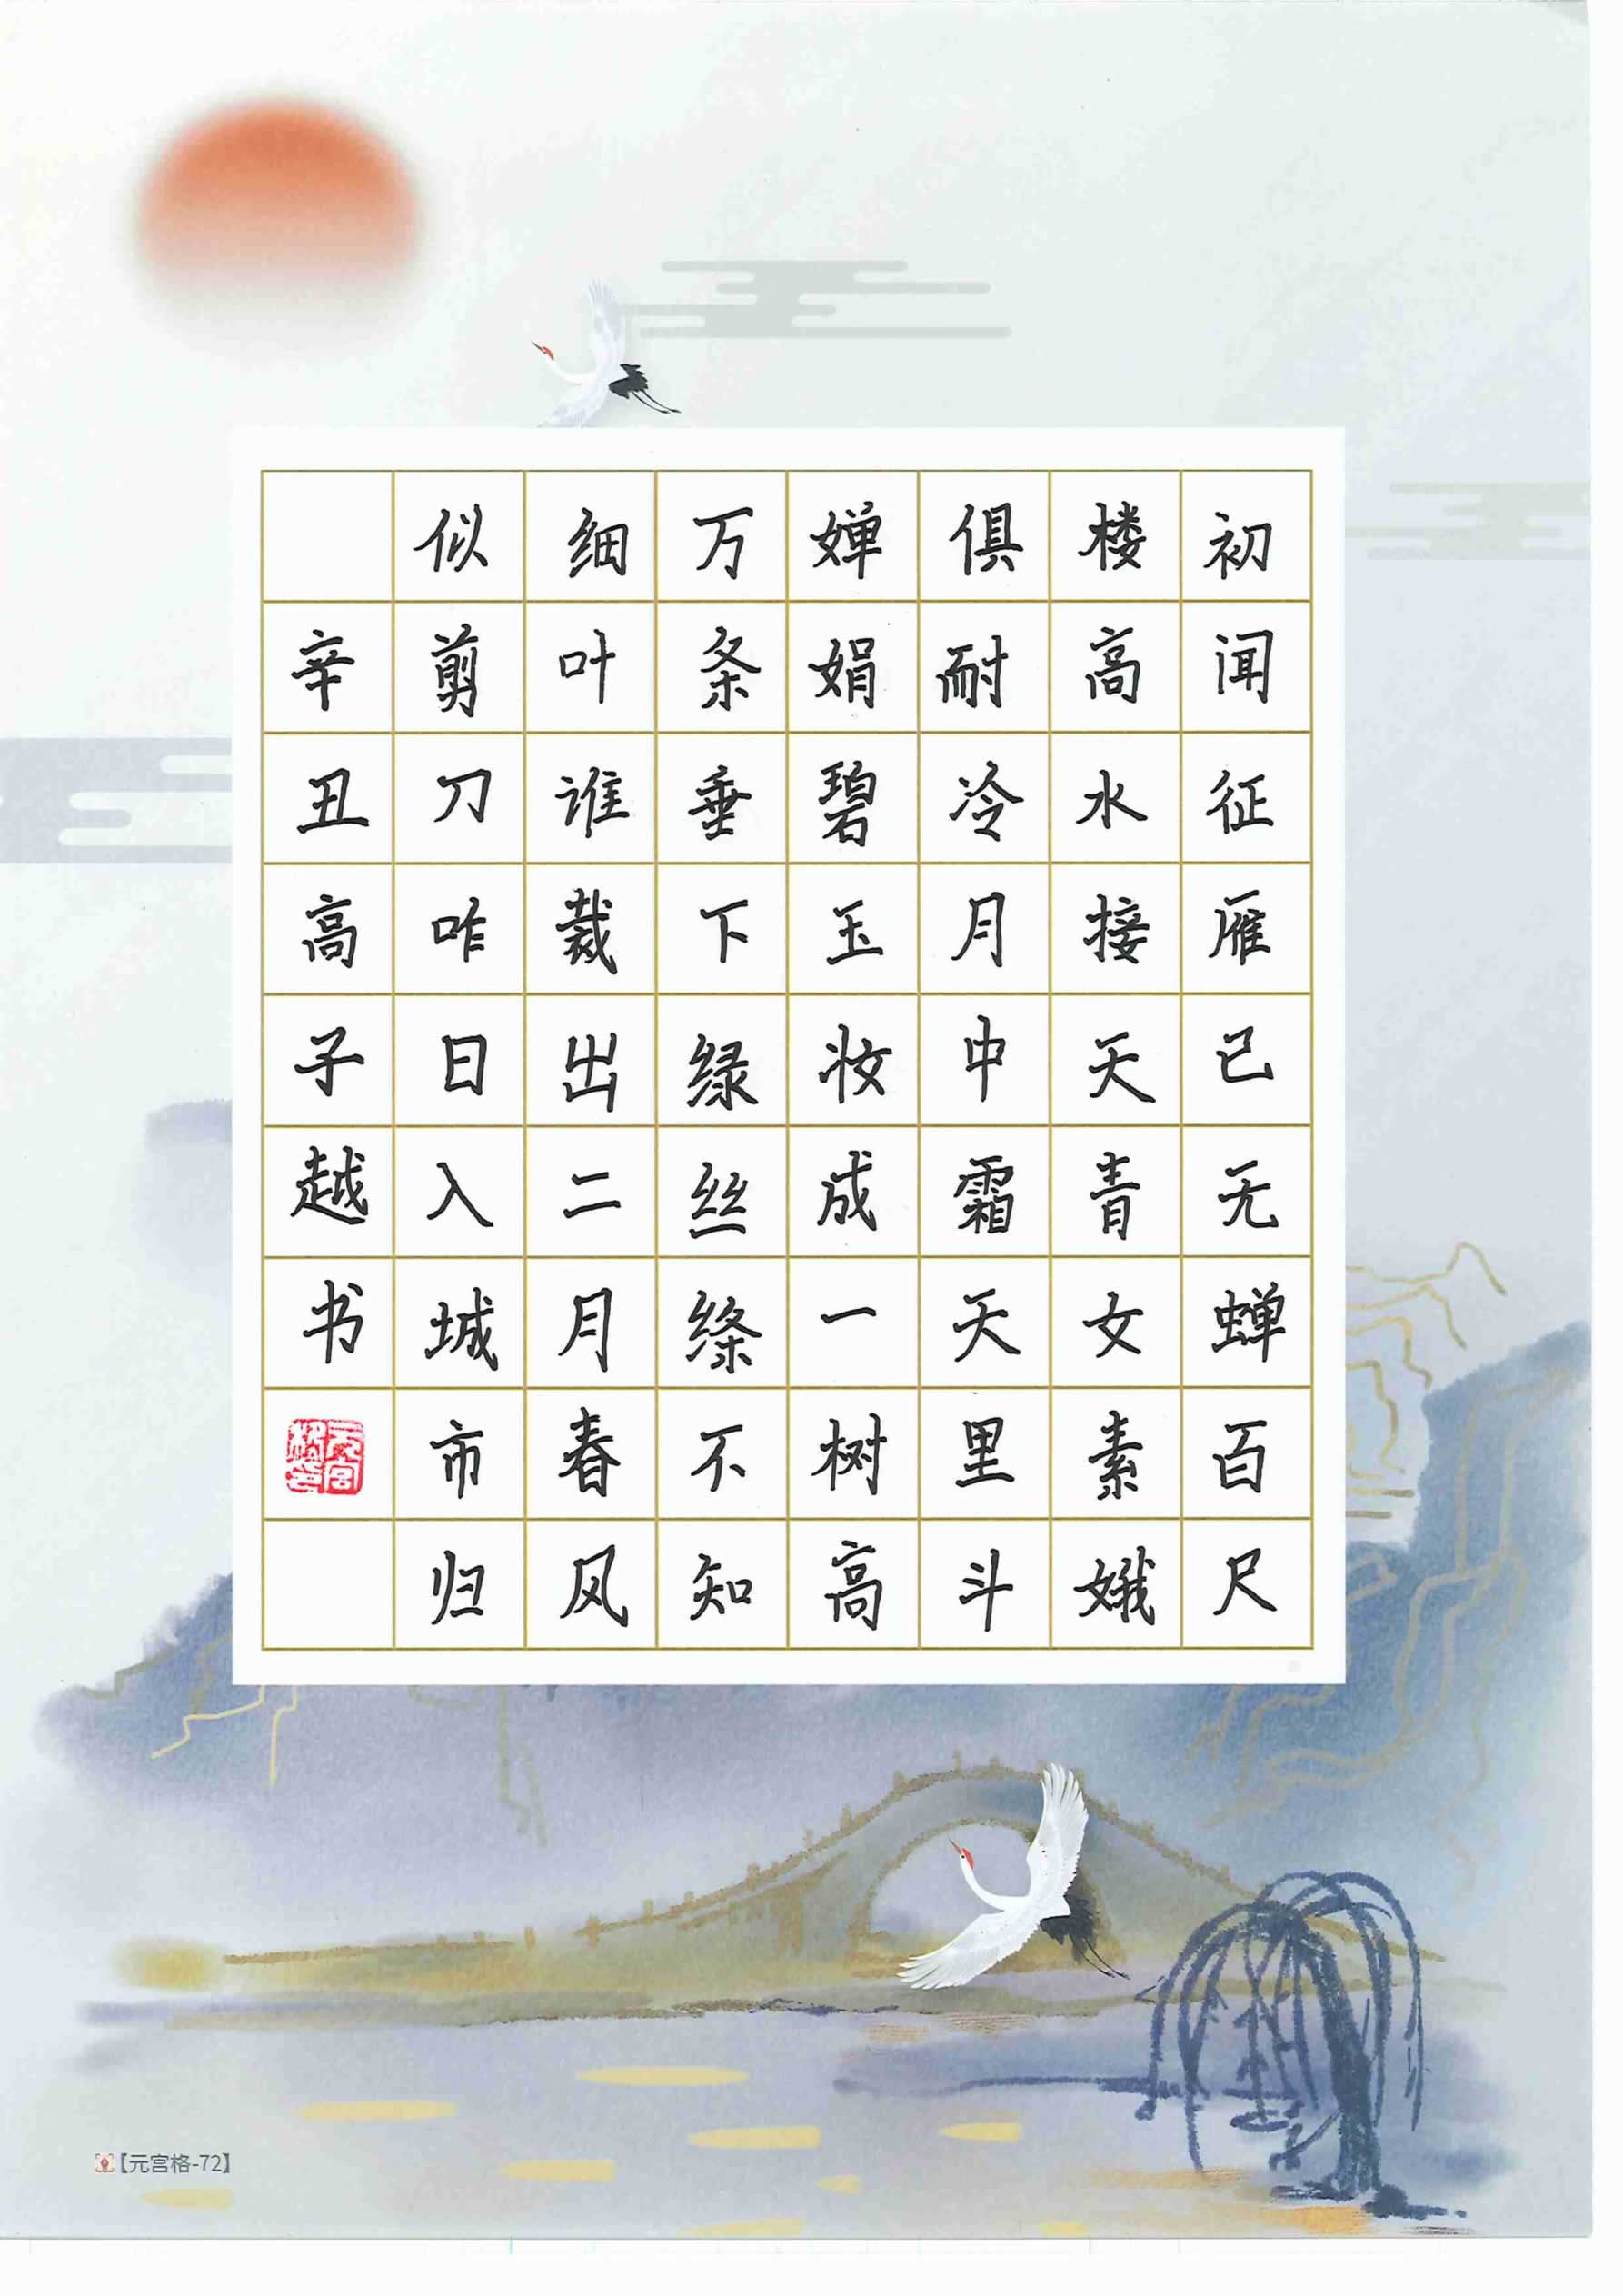 初闻征雁已无蝉百尺
楼高水接天青女素娥
俱耐冷月中霜天里斗
婵娟碧玉妆成一树高
万条垂下绿丝绦不知
细叶谁裁出二月春风
似剪刀咋日入城市归
辛丑高子越书
【元宫格-72】